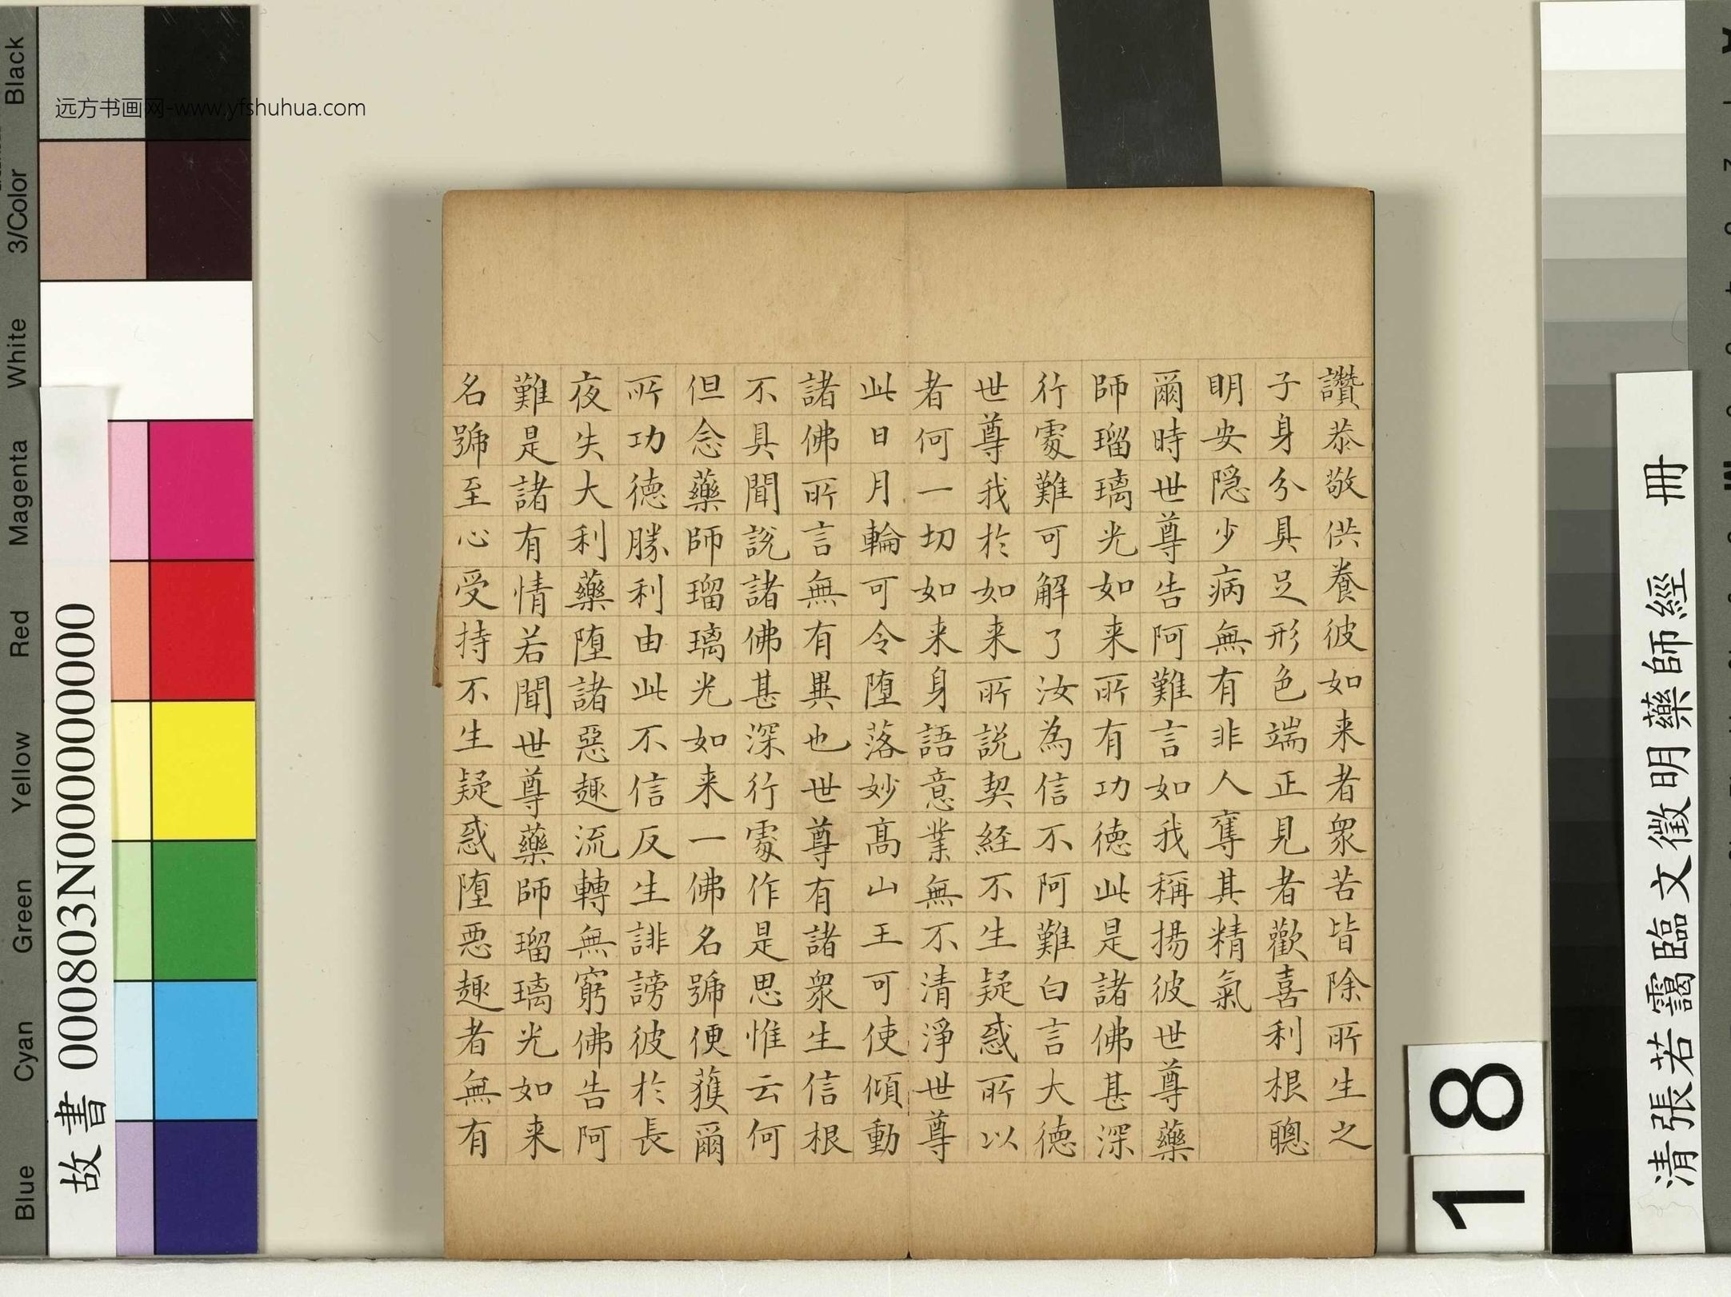 讚恭敬供養彼如来者衆苦皆除所生之
子身分具足形色端正見者歡喜利根聰
明安隠少病無有非人奪其精氣
爾時世尊告阿難言如我稱揚彼世尊藥
師瑠璃光如来所有功德此是諸佛甚深
行處難可解了汝為信不阿難白言大德
世尊我於如来所説契経不生疑惑所以
者何一切如来身語意業無不清淨世尊
此日月輪可令墮落妙高山王可使傾動
諸佛所言無有異也世尊有諸衆生信根
不具聞說諸佛甚深行處作是思惟云何
但念藥師瑠璃光如来一佛名號便獲爾
所功德勝利由此不信反生誹謗彼於長
夜失大利藥墮諸惡趣流轉無窮佛告阿
難是諸有情若聞世尊藥師瑠璃光如来
名號至心受持不生疑惑墮悪趣者無有
远方书画网-www.yfshuhua.com
Black
3/Color
White
Magenta
Red
Yellow
Green
Cyan
Blue
故書 000803N000000000
18
清張若靄臨文徵明藥師經 冊